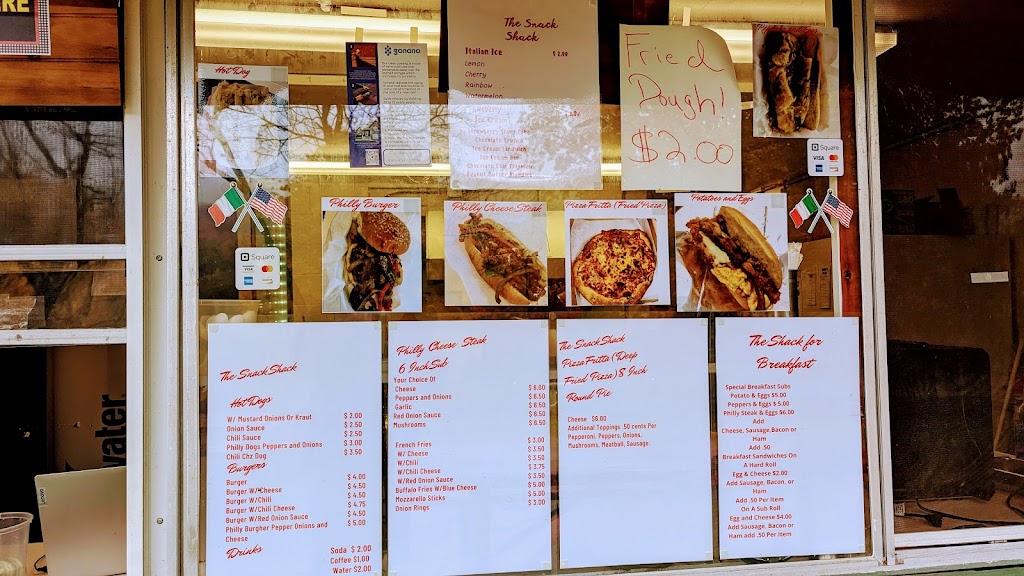 RE
Hot Dog
gonano
The Snack
Shack
Italian Ice $ 2.00
Lemon
Cherry
Rainbow
Watermelon
Ice Cream
Strawberry Short Cake
Chocolate
Ice Cream Sandwich
Fried
Dough!
$2.00
Square
VISA
Philly Burger
Philly Cheese Steak
Pizza Fritta (Fried Pizza)
Potatoes and Eggs
Square
VISA
The Snack Shack
Hot Dogs
W/ Mustard Onions Or Kraut $ 2.00
Onion Sauce $ 2.50
Chili Sauce $ 2.50
Philly Dogs Peppers and Onions $ 3.00
Chili Chz Dog $ 3.50
Burgers
Burger $ 4.00
Burger W/Cheese $ 4.50
Burger W/Chili $ 4.50
Burger W/Chili Cheese $ 4.75
Burger W/Red Onion Sauce $ 4.50
Philly Burgher Pepper Onions and $ 5.00
Cheese
Drinks
Soda $ 2.00
Coffee $1.00
Water $2.00
Philly Cheese Steak
6 Inch Sub
Your Choice Of
Cheese $ 6.00
Peppers and Onions $ 6.50
Garlic $ 6.50
Red Onion Sauce $ 6.50
Mushrooms $ 6.50
French Fries $ 3.00
W/ Cheese $ 3.50
W/Chili $ 3.50
W/Chili Cheese $ 3.75
W/Red Onion Sauce $ 3.50
Buffalo Fries W/Blue Cheese $ 5.00
Mozzarella Sticks $ 5.00
Onion Rings $ 3.00
The Snack Shack
Pizza Fritta (Deep
Fried Pizza) 8 Inch
Round Pie
Cheese $6.00
Additional Toppings .50 cents Per
Pepperoni, Peppers, Onions,
Mushrooms, Meatball, Sausage.
The Shack for
Breakfast
Special Breakfast Subs
Potato & Eggs $5.00
Peppers & Eggs $ 5.00
Philly Steak & Eggs $6.00
Add
Cheese, Sausage,Bacon or
Ham
Add .50
Breakfast Sandwiches On
A Hard Roll
Egg & Cheese $2.00
Add Sausage, Bacon, or
Ham
Add .50 Per Item
On A Sub Roll
Egg and Cheese $4.00
Add Sausage, Bacon or
Ham add .50 Per Item
water
Lenovo